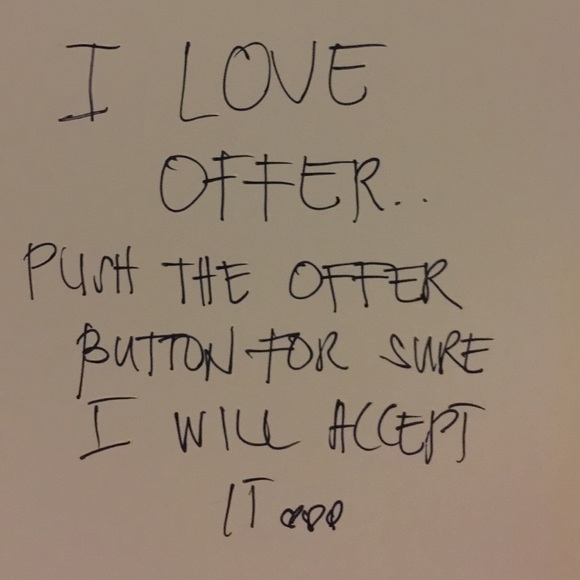 I LOVE
OFFER..
PUSH THE OFFER
BUTTON FOR SURE
I WILL ACCEPT
IT...